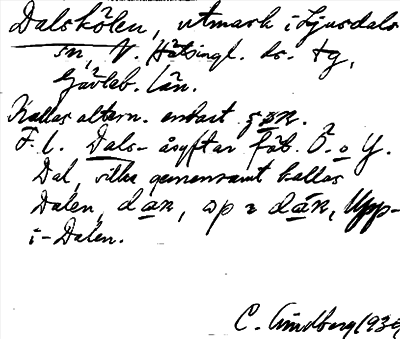 Dalskölen, utmark i Ljusdals
sn, V. Hälsingl. ds. tg,
Gävleb. län.
Kallas altern. enbart
F. l. Dals- åsyftar fäb. Ö. o Y.
Dal, vilka gemensamt kallas
Dalen, dan, dan, Upp-
i-Dalen.
C. Lindberg 193